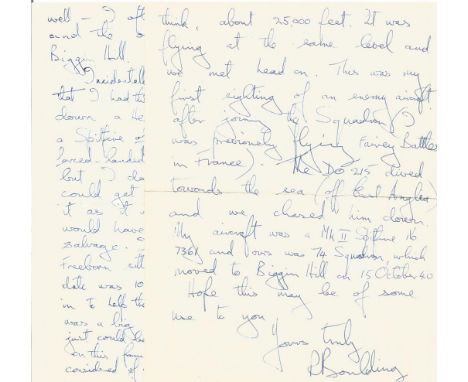 well - I oft
ound the b
Biggin Hill.
Incidentall
that I had th
down a He
a Spitfire of
forced-landed
but I do
could get
it as it w
would have
salvage.
Freeborn
date was 10
in To
was a big
just could be
on this fam
considered of
think, about 25000 feet. It was
flying at the same level and
we met head on. This was my
first sighting of an enemy aircraft
after joining the Squadron (I
was previously flying Fairey Battles
in France). The DO 215 dived
towards the sea (off East Anglia)
and we chased him down.
My aircraft was a Mk II Spitfire No
7361 and ours was 74 Squadron, which
moved to Biggin Hill on 15 October 40
Hope this may be of some
use to you
Yours truly
R Boulding